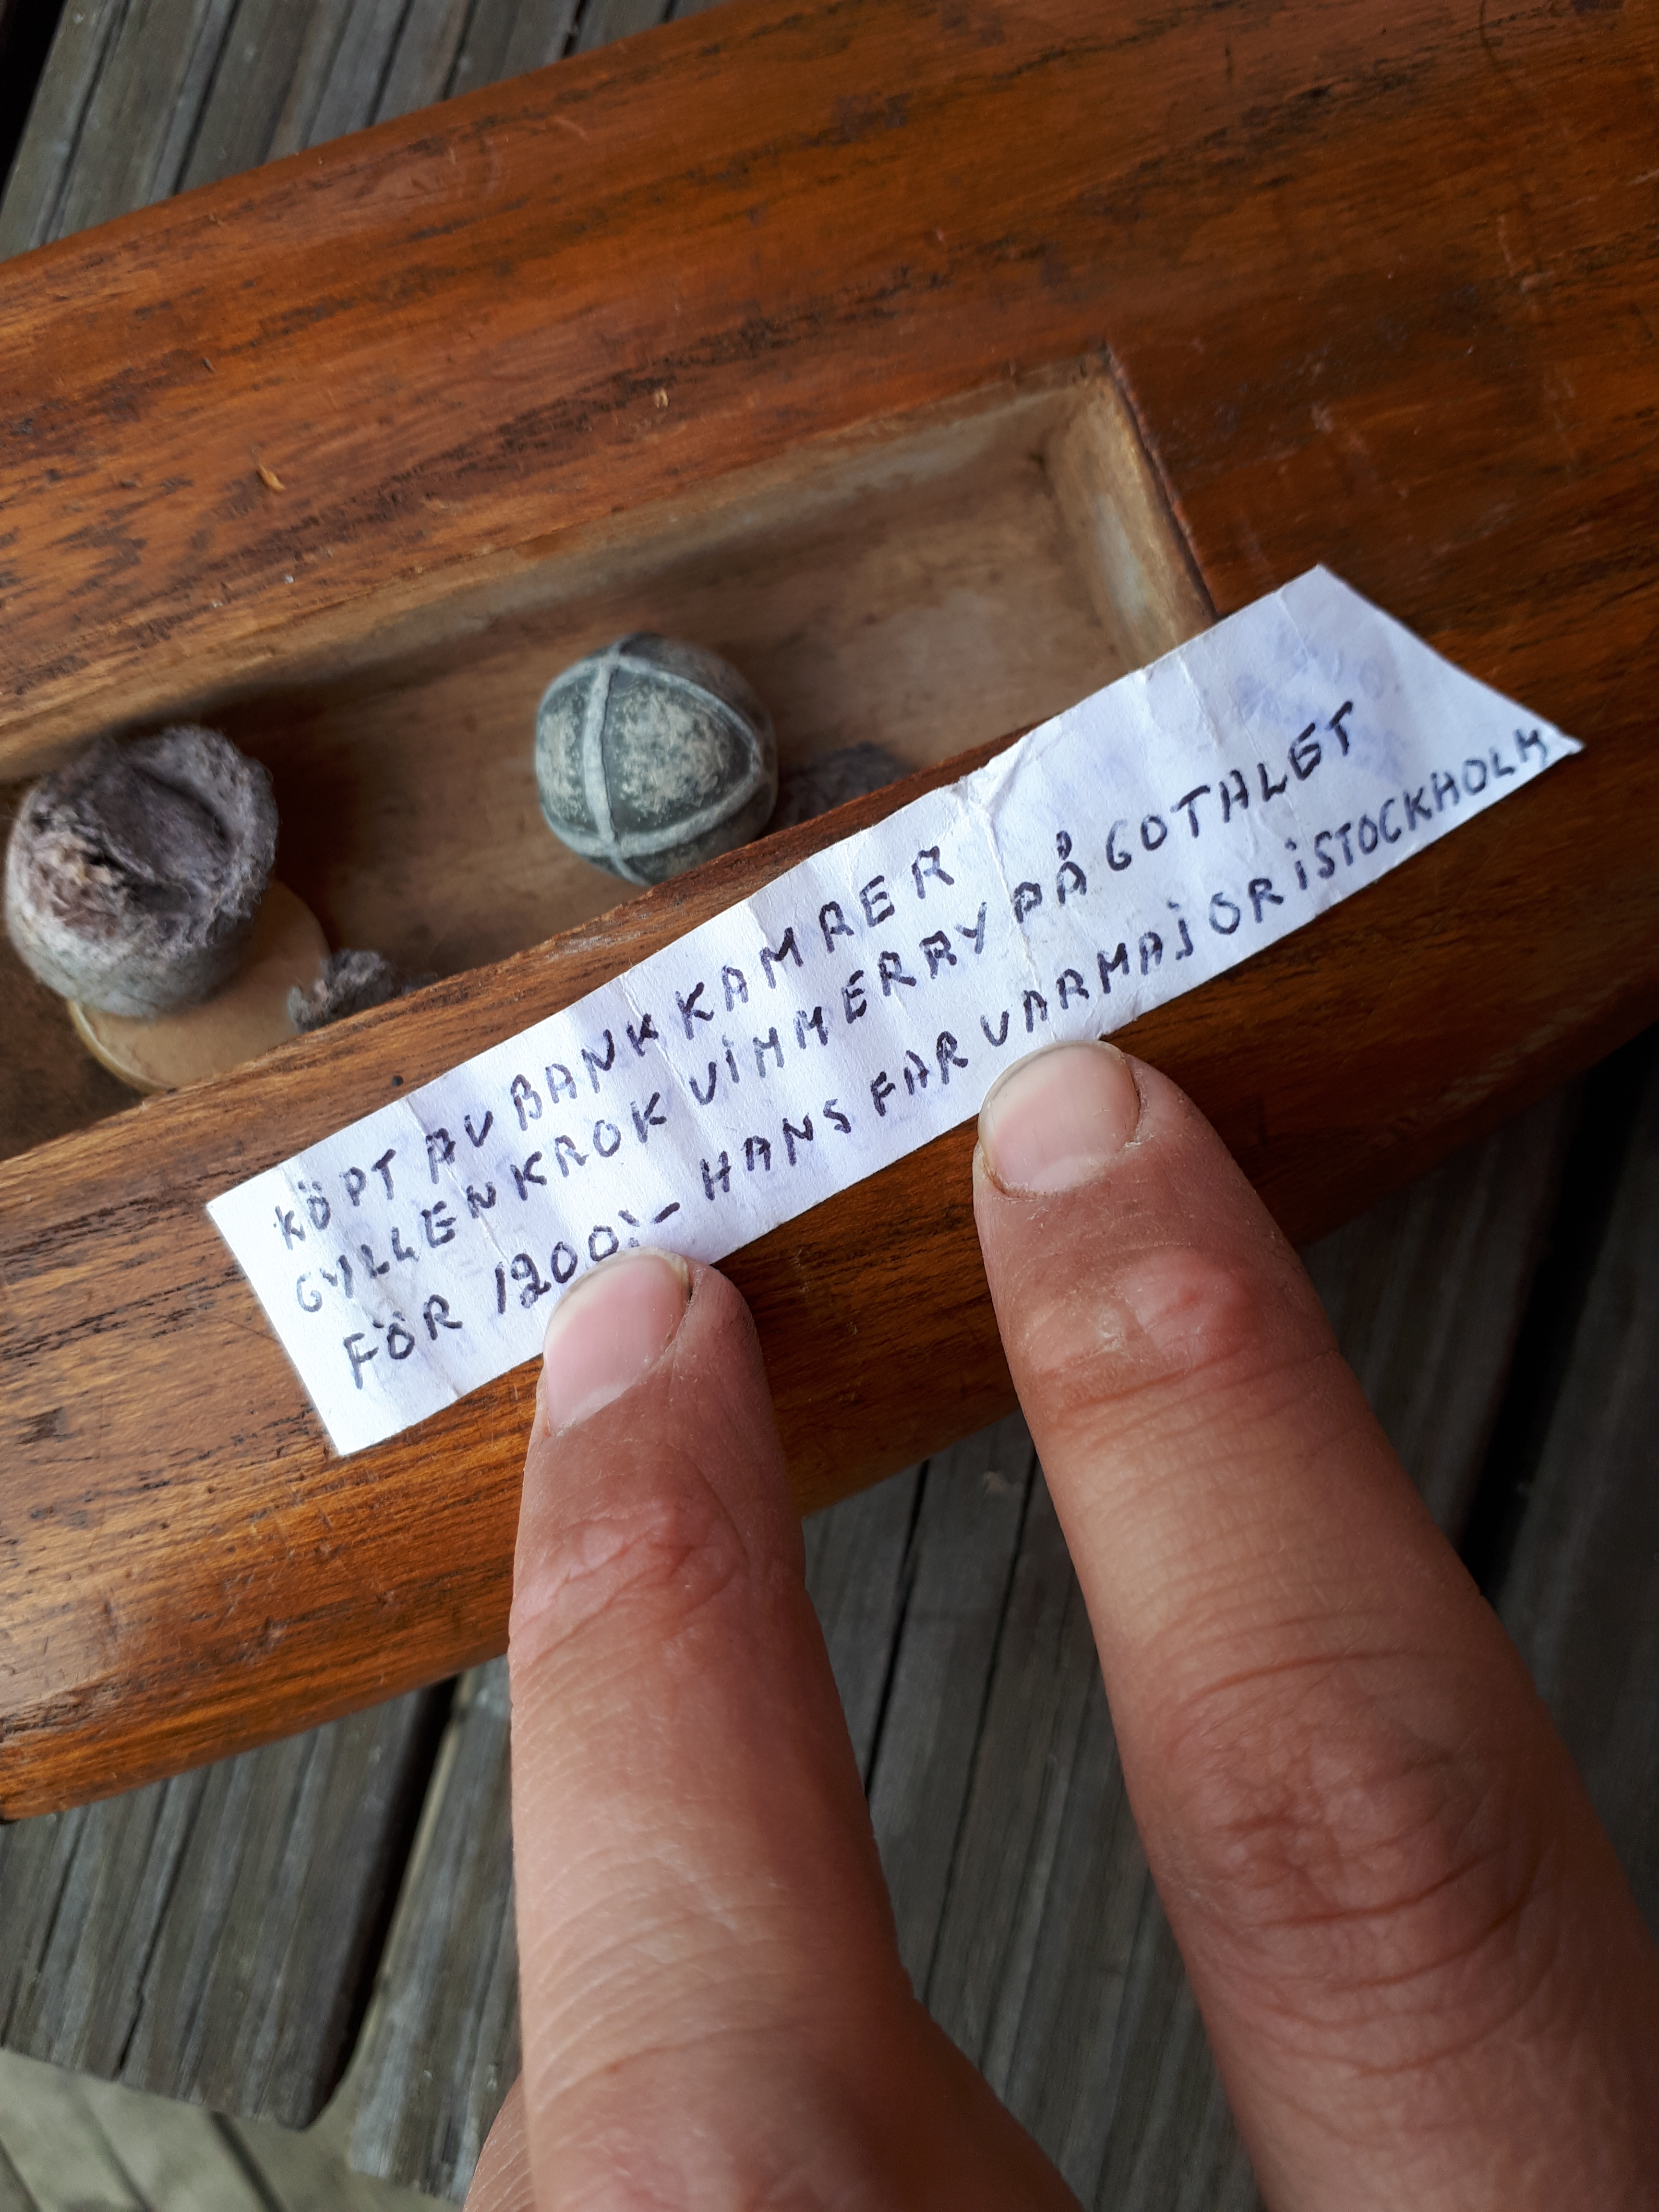 KÖPT AV BANKKAMRER
GYLLENKROK VIMMERRY PÅ GOTALET
FÖR 1200:- HANS FAR VAR MAJOR I STOCKHOLM